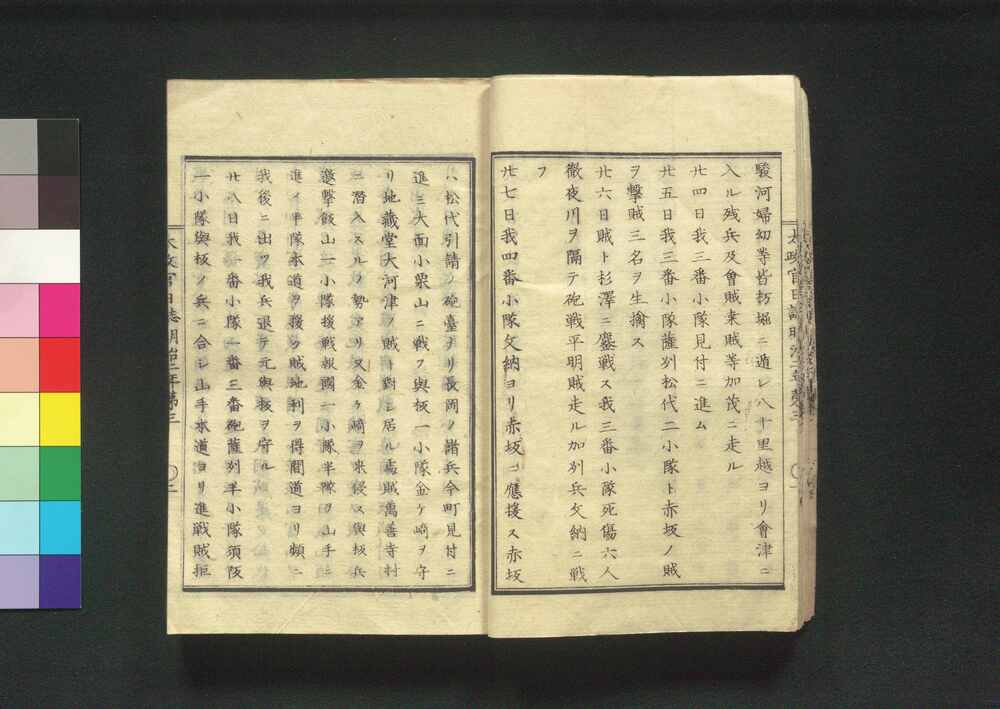 駿河婦幼等皆栃堀ニ遁レ八十里越ヨリ會津ニ
入ル残兵及會賊来賊等加茂ニ走ル
廿四日我三番小隊見付ニ進ム
廿五日我三番小隊薩州松代二小隊ト赤坂ノ賊
ヲ撃賊三名ヲ生擒ス
廿六日賊ト杉澤ニ鏖戦ス我三番小隊死傷六人
徹夜川ヲ隔テ砲戦平明賊走ル加州兵文納ニ戦
フ
廿七日我四番小隊文納ヨリ赤坂ニ應援ス赤坂
ハ松代引請ノ砲臺ナリ長岡ノ諸兵今町見付ニ
進ミ大面小栗山ニ戦フ與板一小隊金ケ崎ヲ守
リ地藏堂大河津ノ賊ニ對シ居ル處賊萬善寺村
ニ潜入スルノ勢アリ又金ケ崎ヲ来侵ス與板兵
邀撃飯山一小隊援戦報國一小隊半隊ヲ山手ニ
進メ半隊本道ヲ援フ賊地利ヲ得間道ヨリ頻ニ
我後ニ出ツ我兵退テ元與板ヲ守ル
廿八日我一番小隊一番三番砲薩州半小隊須坂
一小隊與板ノ兵ニ合シ山手本道ヨリ進戦賊拒
太政官日誌明治二年第三